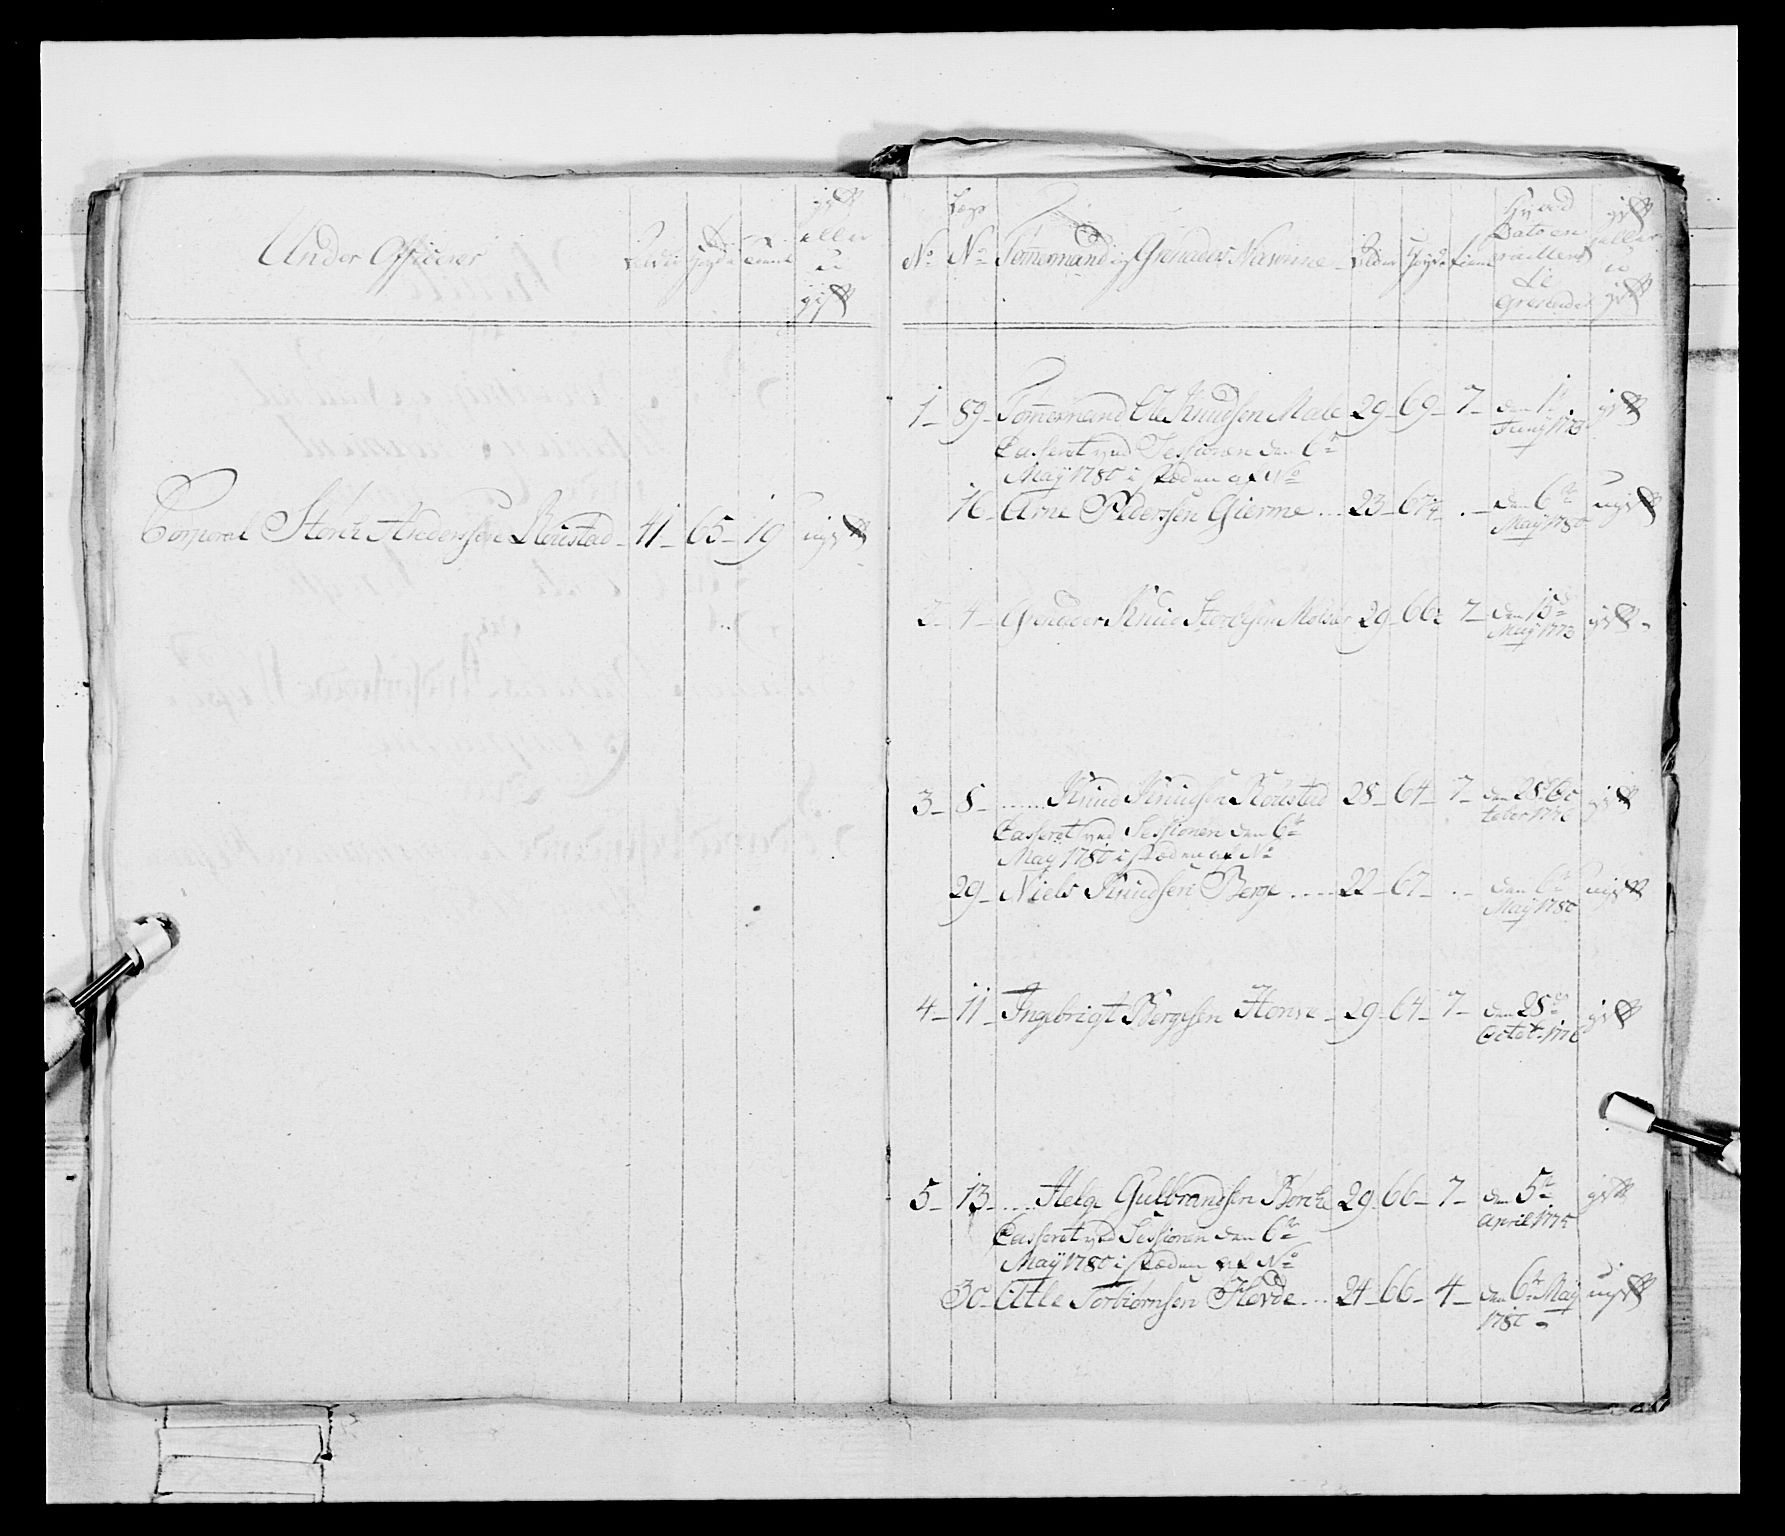 Under Officerer
Alder
Høyde
tient
gift
eller
u
gift
Corporal Storch Andersen Roustad 41 65 19 ugift
Lægs
No No Tømmermænd og Grenaders Navnene Alder Høyde tient
Hvad
Dato en
Grenader
gift
eller
u
gift
1 89 Tømmermand Ole Knudsen Male 29 69 7 den 1
Casseret ved Sessionen den 6te
May 1780 i stæden af No
16 Arne Pedersen Gierme 23 67¼ den 6te ugift
May 1780
2 4 Grenader Knud 29 66½ 7 den 15de gift
May 1773
3 8 Knud Knudsen Roustad 28 64 7 den 28de Oc gift
tober 1776
Casseret ved Sessionen den 6te
May 1780 i stæden af No
29 Niels Knudsen Berge 22 67 den 6te ugift
May 1780
4 11 Ingebrigt Bergesen Honve 29 64 7 den 28de gift
Octob. 1776
5 13 Helge Gulbrandsen Børche 29 66 7 den 5te gift
April 1775
Casseret ved Sessionen den 6te
May 1780 i stæden af No
30 Atle Torbiørnsen Hovde 24 66 4 den 6te May ugift
1780